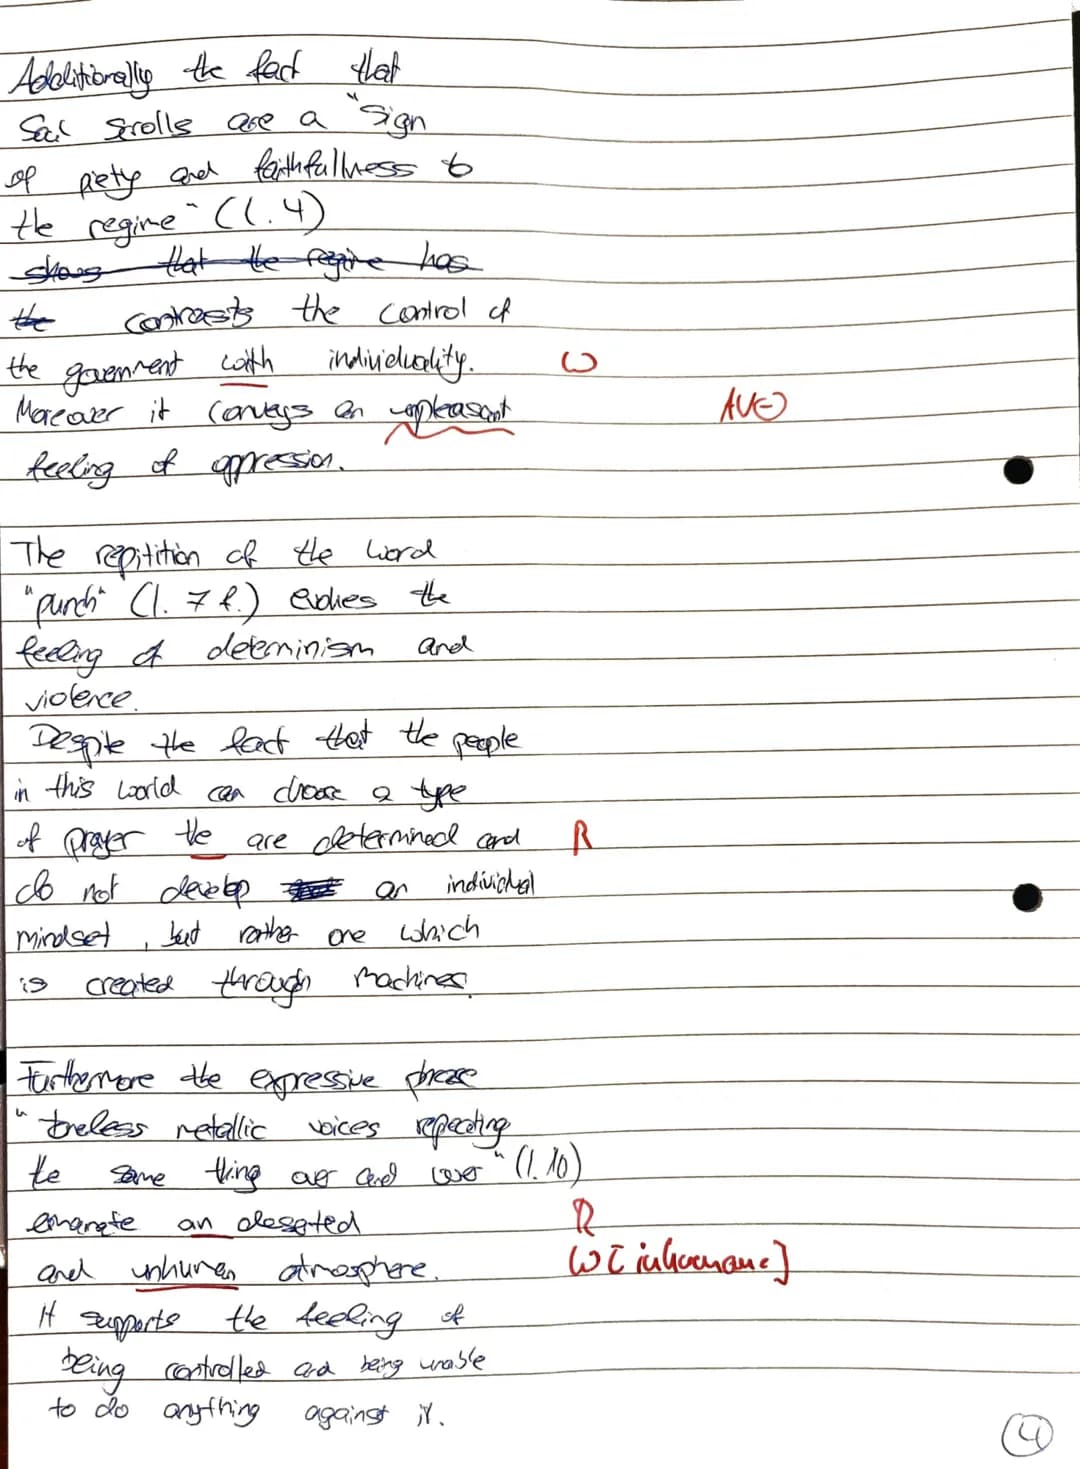 Additionally the fact that
Soul Scrolls are a "sign
of piety and faithfullness to
the regime" (l. 4)
shows that the regime has
the contrasts the control of
the government with individuality. W
Moreover it conveys an unpleasant AV(-)
feeling of oppression.
The repitition of the word
"punch" (l. 7 f.) evokes the
feeling of determinism and
violence.
Despite the fact that the people
in this world can choose a type
of prayer the are determined and R
do not develop an individual
mindset, but rather one which
is created through machines.
Furthermore the expressive phrase
"toneless metallic voices repeating
the same thing over and over" (l. 10)
emanate an deserted R
and unhuman atmosphere. W [inhumane]
It supports the feeling of
being controlled and being unable
to do anything against it.
4